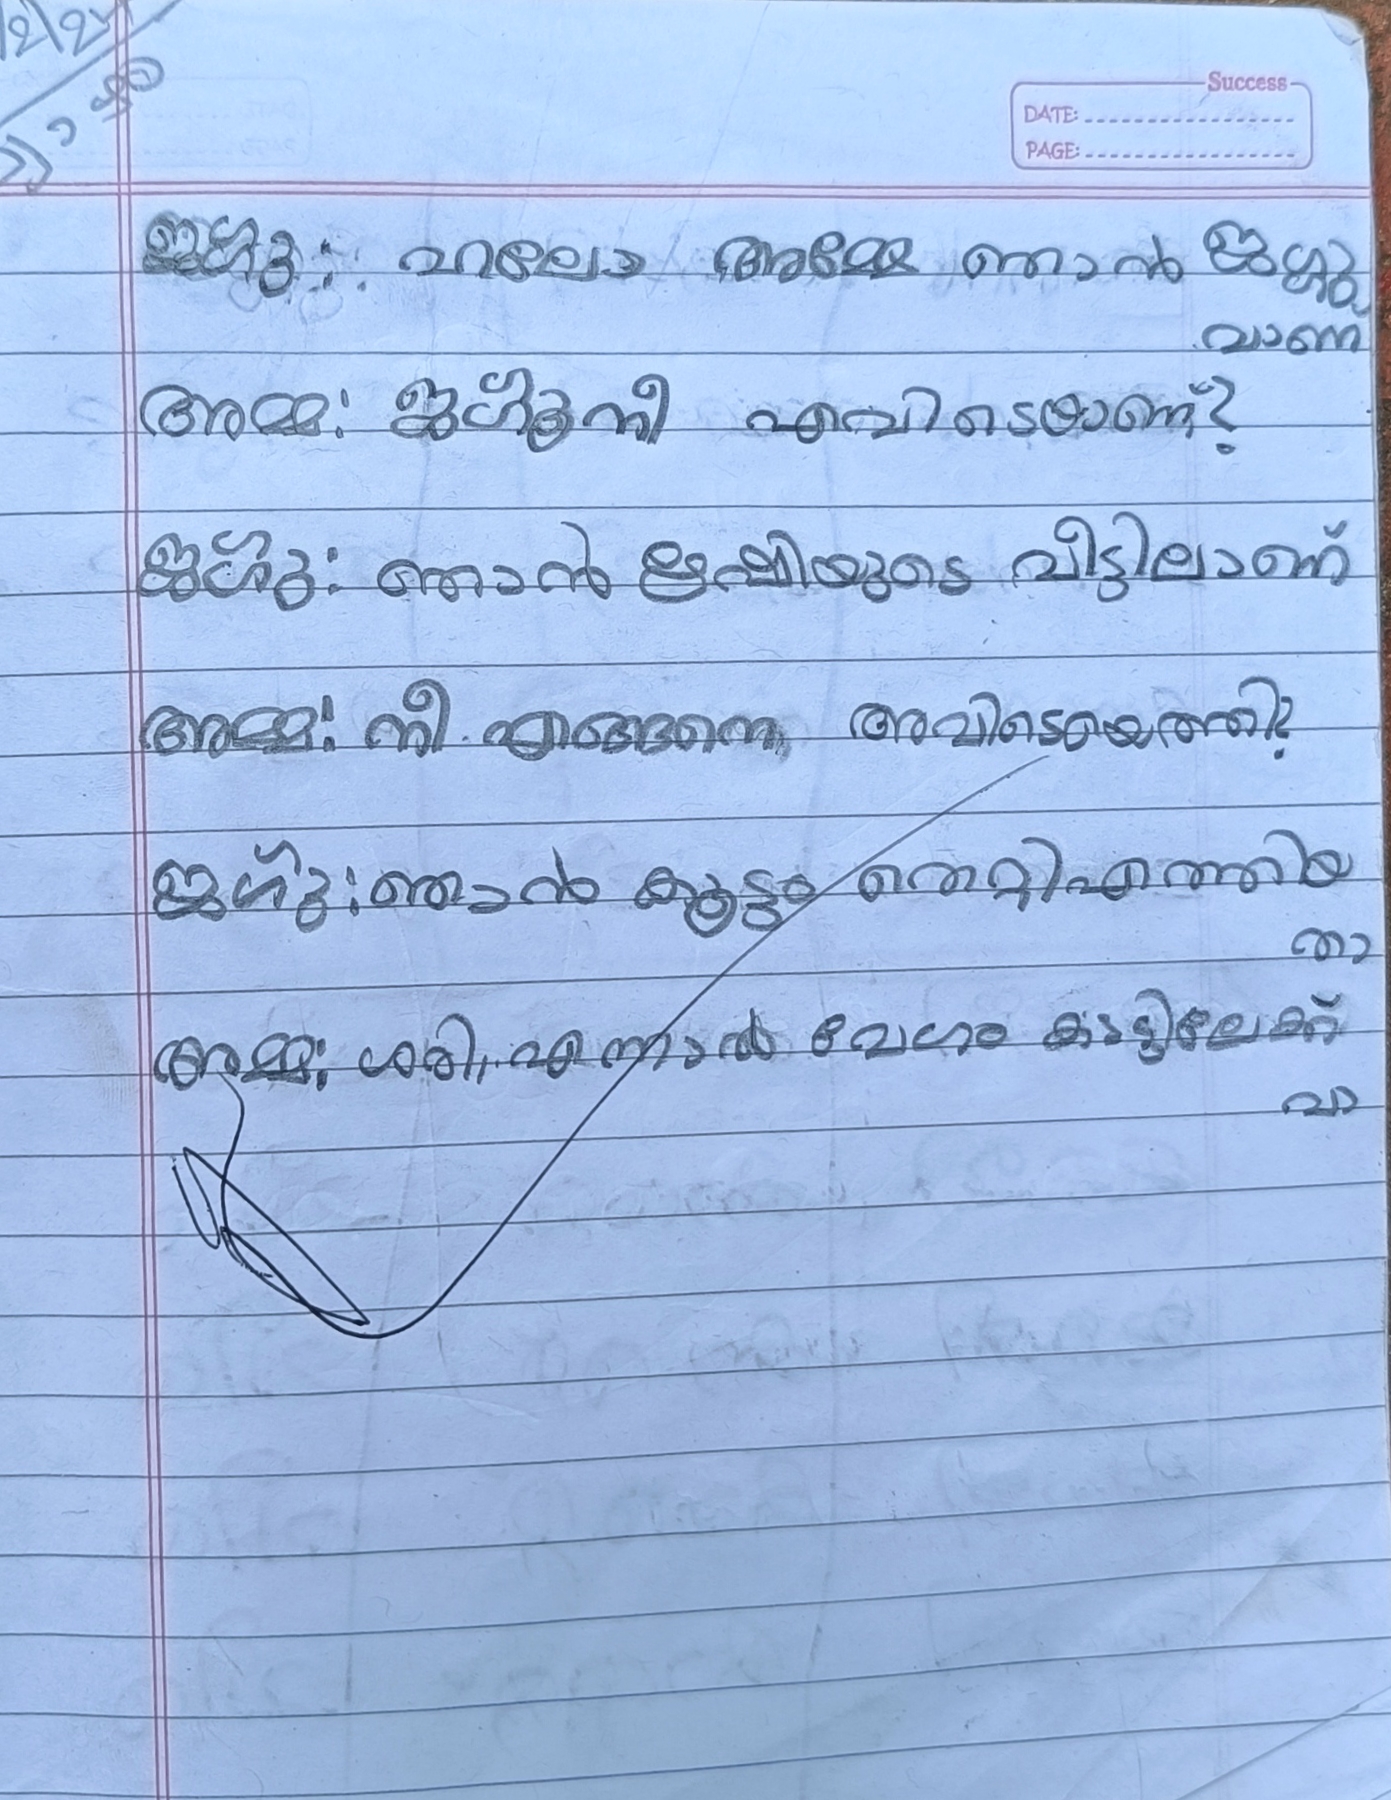 Success
DATE:
PAGE:
ജഗ്ഗു: ഹലോ അമ്മേ ഞാൻ ജഗ്ഗു
വാണ
അമ്മ: ജഗ്ഗു നീ എവിടെയാണ്?
ജഗ്ഗു: ഞാൻ ഋഷിയുടെ വീട്ടിലാണ്
അമ്മ: നീ എങ്ങനെ അവിടെയെത്തി?
ജഗ്ഗു: ഞാൻ കൂട്ടം തെറ്റിഎത്തിയ
താ
അമ്മ: ശരി, എന്നാൽ വേഗം കാട്ടിലേക്ക്
വാ